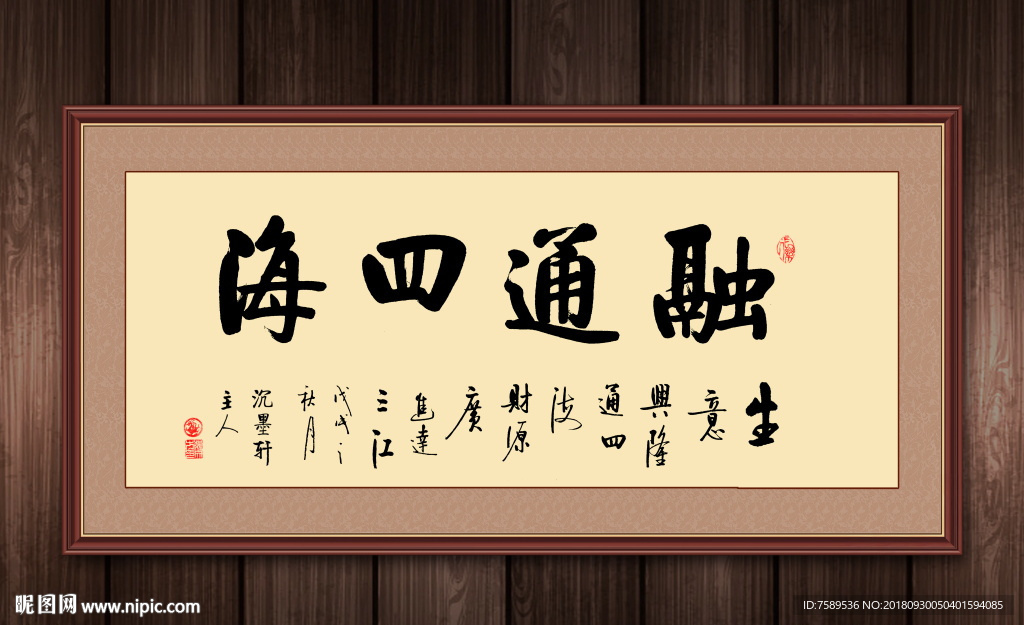 融通四海
生
意
興隆
通四
海
財源
廣
進達
三江
戊戌之
秋月
沉墨轩
主人
昵图网 www.nipic.com
ID:7589536 NO:20180930050401594085